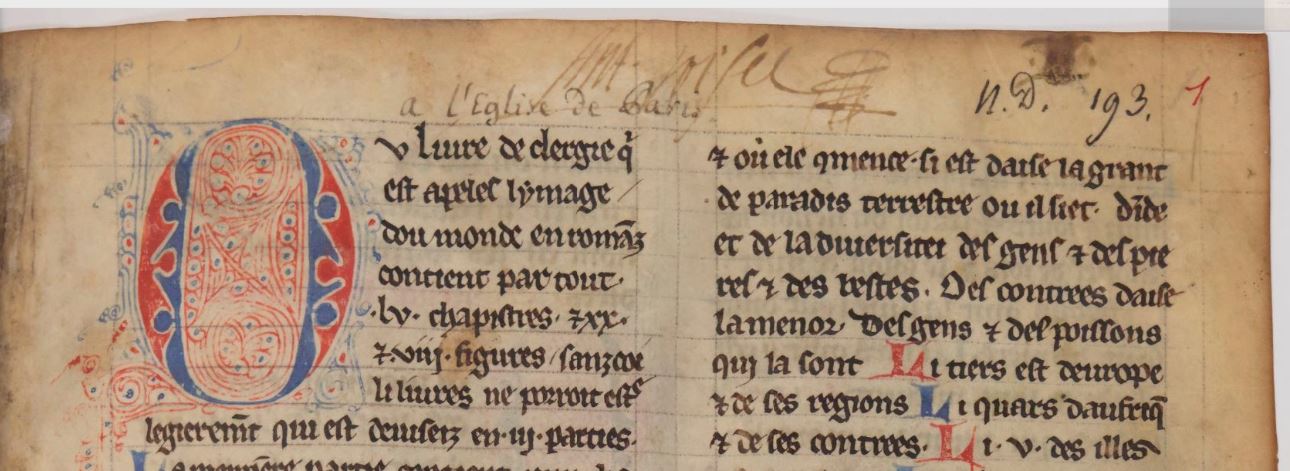 Ant. Loisel
a l'Eglise de Paris
N.D. 193.
1
Ov liure de clergie q̇
est apelés lymage
dou monde en romāz
contient par tout.
.lv. chapistres. ⁊ xx.
⁊ .viij. figures / sanz coi
li liures ne porroit est̄
legierem̄t qui est deuisez en .iij. parties.
⁊ où ele ꝯmence. si est daise la grant
de paradis terrestre ou il siet. Dīde
et de la diuersitei des gens ⁊ des pie
res ⁊ des bestes. Des contrees daise
la menor. Des gens ⁊ des poissons
qui la sont Li tiers est deurope
⁊ de ses regions Li quars daufriq̄
⁊ de ses contrees. Li .v. des illes